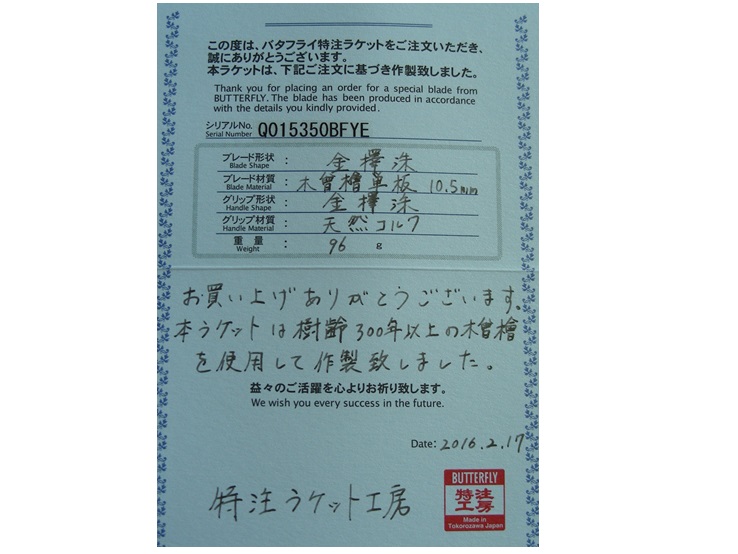 この度は、バタフライ特注ラケットをご注文いただき、
誠にありがとうございます。
本ラケットは、下記ご注文に基づき作製致しました。
Thank you for placing an order for a special blade from
BUTTERFLY. The blade has been produced in accordance
with the details you kindly provided.
シリアルNo.
Serial Number Q015350BFYE
ブレード形状
Blade Shape : 金擇洙
ブレード材質
Blade Material : 木曾檜単板 10.5mm
グリップ形状
Handle Shape : 金擇洙
グリップ材質
Handle Material : 天然コルク
重量
Weight : 96 g
お買い上げありがとうございます。
本ラケットは樹齢300年以上の木曾檜
を使用して作製致しました。
益々のご活躍を心よりお祈り致します。
We wish you every success in the future.
Date: 2016.2.17
特注ラケット工房
BUTTERFLY
特注
工房
Made in
Tokorozawa Japan